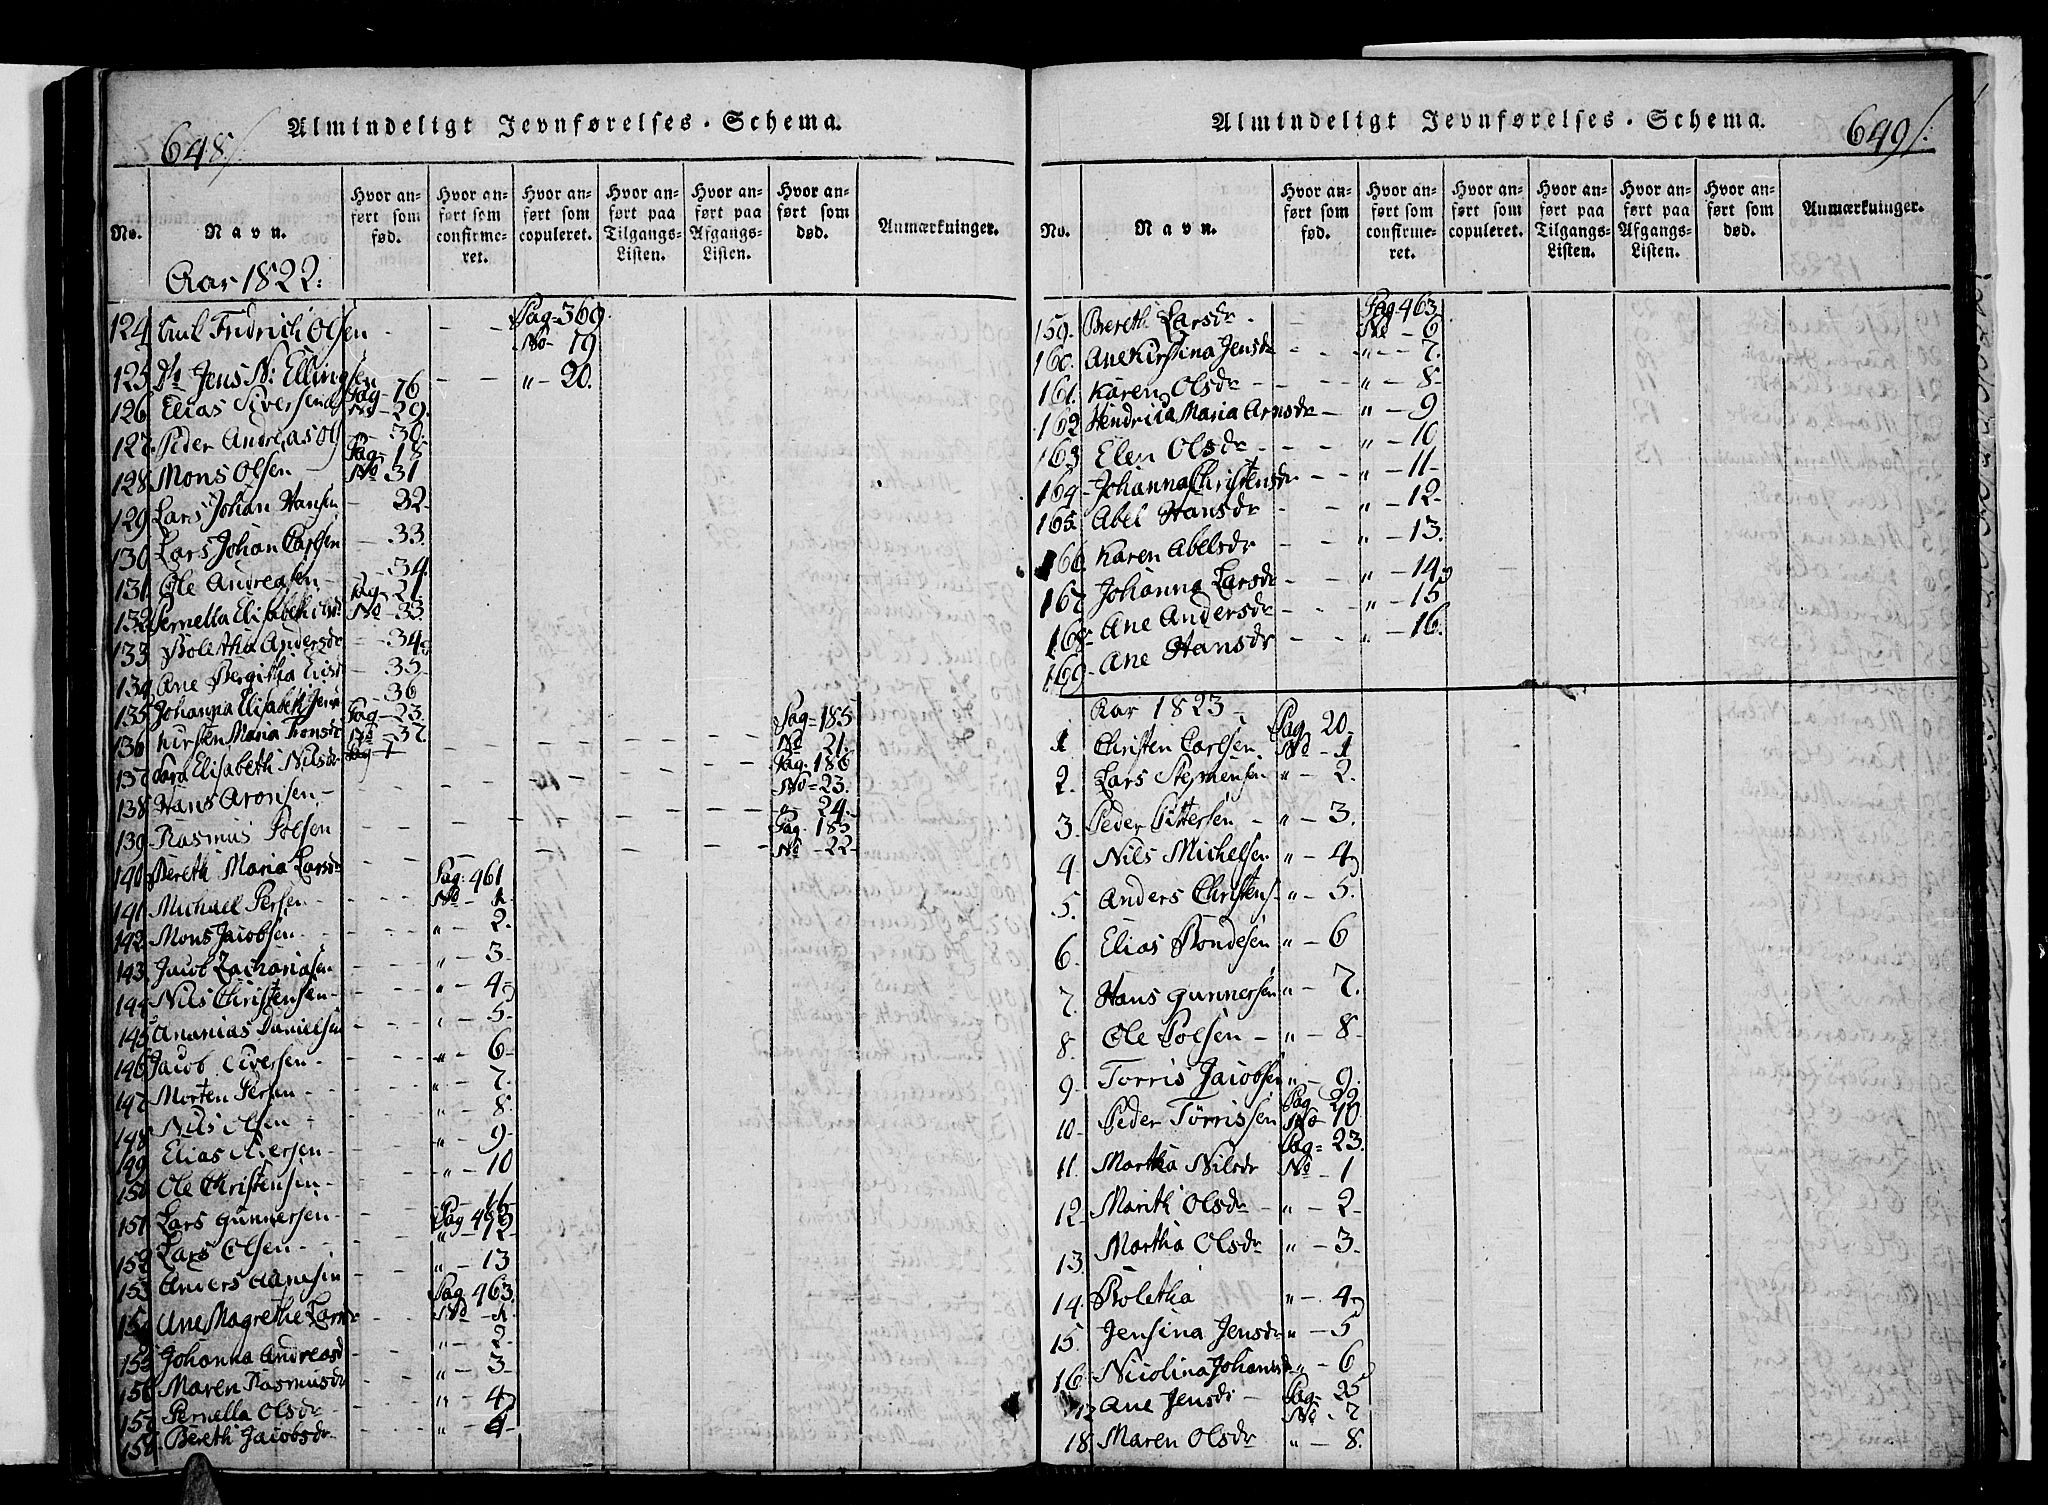 648/.
Almindeligt Jevnførelses-Schema.
No.
Navn.
Hvor an-
ført som
fød.
Hvor an-
ført som
confirme-
ret.
Hvor an-
ført som
copuleret.
Hvor an-
ført paa
Tilgangs-
Listen.
Hvor an-
ført paa
Afgangs-
Listen.
Hvor an-
ført som
død.
Anmærkninger.
Aar 1822:
124 Fridrich Olsen - - Pag = 369.
No - 19
125 Jens N: Ellingsen - - " - 20.
126 Elias Siversen Pag - 76 No - 29.
127. Peder Andreas - 30.
128 Mons Olsen Pag - 18 No 31
129 Lars Johan Hansen - 32-
130 Lars Johan Carlsen - 33.
131. Ole Andreasen - - 34.
132 Pernella Elisabeth Pag - 21. No - 33.
133 Boletha Andersdr - 34
134 Ane Bergitha - 35.
135 Johanna Elisabeth - 36
136 Kirsten Maria Tronsdr Pag - 23. No - 37.
137 Sara Elisabeth Nilsdr - - - - - Pag = 185 No 21.
138 Hans Aronsen - - - - - - Pag. 186 No - 23.
139 Rasmus Polsen - - - - - " - 24.
140 Bereth Maria Larsdr - - - - - Pag. 185 No - 22-
141 Michael Persen - - - Pag: 461 No - 1.
142 Mons Jacobsen. - - " - 2.
143. Jacob Zachariasen - - " - 3-
144 Nils Christensen - - - " - 4
145 Ananias Danielsen - - " - 5.
146 Jacob Siversen - - - " - 6-
147 Morten Persen - - - " - 7.
148 Nils Olsen - - - " - 8.
149 Elias - - - " - 9-
150 Ole Christensen - - - " - 10
151 Lars Gunnersen - - -
152 Lars Olsen - - - " - 12-
153 Anders - - " - 13
154 Ane Magrethe - - Pag 463. No - 1.
155 Johanna Andreasd - - " - 2-
156 Maren Rasmusdr - - " - 3-
157 Pernella Olsdr - - " - 4
158 Bereth Jacobsdr - - "
649/.
Almindeligt Jevnførelses-Schema.
No.
Navn.
Hvor an-
ført som
fød.
Hvor an-
ført som
confirme-
ret.
Hvor an-
ført som
copuleret.
Hvor an-
ført paa
Tilgangs-
Listen.
Hvor an-
ført paa
Afgangs-
Listen.
Hvor an-
ført som
død.
Anmærkninger.
159. Bereth Larsdr - - Pag 463. No - 6
160. Ane Kirstina Jensdr - - " - 7.
161. Karen Olsdr - - - " - 8-
162 Hendrica Maria Arnsdr - " - 9
163 Elen Olsdr - - - " - 10
164- Johanna Christensdr - - " - 11-
165. Abel Hansdr - - " - 12-
166. Karen Abelsdr - - " - 13.
167 Johanna Larsdr - - " - 14
168- Ane Andersdr - - - " - 15
169- Ane Hansdr - - " - 16.
Aar 1823-
1 Christen Carlsen Pag 20. No - 1
2. Lars " - 2.
3. Peder Pittersen - " - 3.
4. Nils Michelsen " - 4
5. Anders Christens- " - 5.
6. Elias Bondesen " - 6
7. Hans Gunnersen " - 7.
8. Ole Polsen - " - 8-
9- Torris Jacobsen " - 9.
10- Peder Torrissen Pag 22 No 10.
11. Martha Nilsdr Pag = 23. No - 1
12. Marith Olsdr - " - 2-
13. Martha Olsdr " - 3-
14. Boletha " - 4
15. Jensina Jensdr " - 5
16. Nicolina Johansdr " - 6
17 Ane Jensdr - Pag - 25 No - 7
18. Maren Olsdr " - 8.